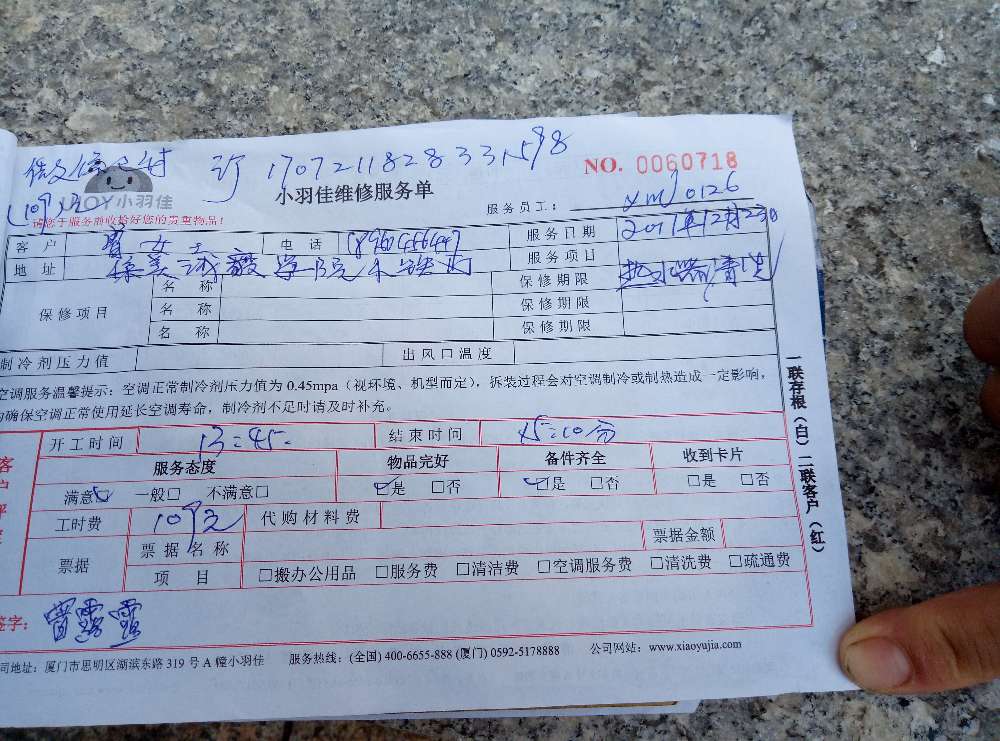 微信支付 订 17072118283315 88
109元 JOY小羽佳 小羽佳维修服务单 NO. 0060718
请您于服务前收拾好您的贵重物品! 服务员工: xm10126
客户 女士 电话 服务日期
地址 集美诚毅学院 服务项目 热水器清洗
保修项目 名称 保修期限
名称 保修期限
名称 保修期限
制冷剂压力值 出风口温度
空调服务温馨提示:空调正常制冷剂压力值为 0.45mpa(视环境、机型而定),拆装过程会对空调制冷或制热造成一定影响,
确保空调正常使用延长空调寿命,制冷剂不足时请及时补充。
开工时间 13:45 结束时间 15:10分
服务态度 物品完好 备件齐全 收到卡片
满意 一般□ 不满意□ □是 □否 □是 □否 □是 □否
工时费 109元 代购材料费
票据 票据名称 票据金额
项目 □搬办公用品 □服务费 □清洁费 □空调服务费 □清洗费 □疏通费
签字: 露露
司地址:厦门市思明区湖滨东路 319 号 A 幢小羽佳 服务热线:(全国) 400-6655-888 (厦门) 0592-5178888 公司网站:www.xiaoyujia.com
一联存根(白)二联客户(红)